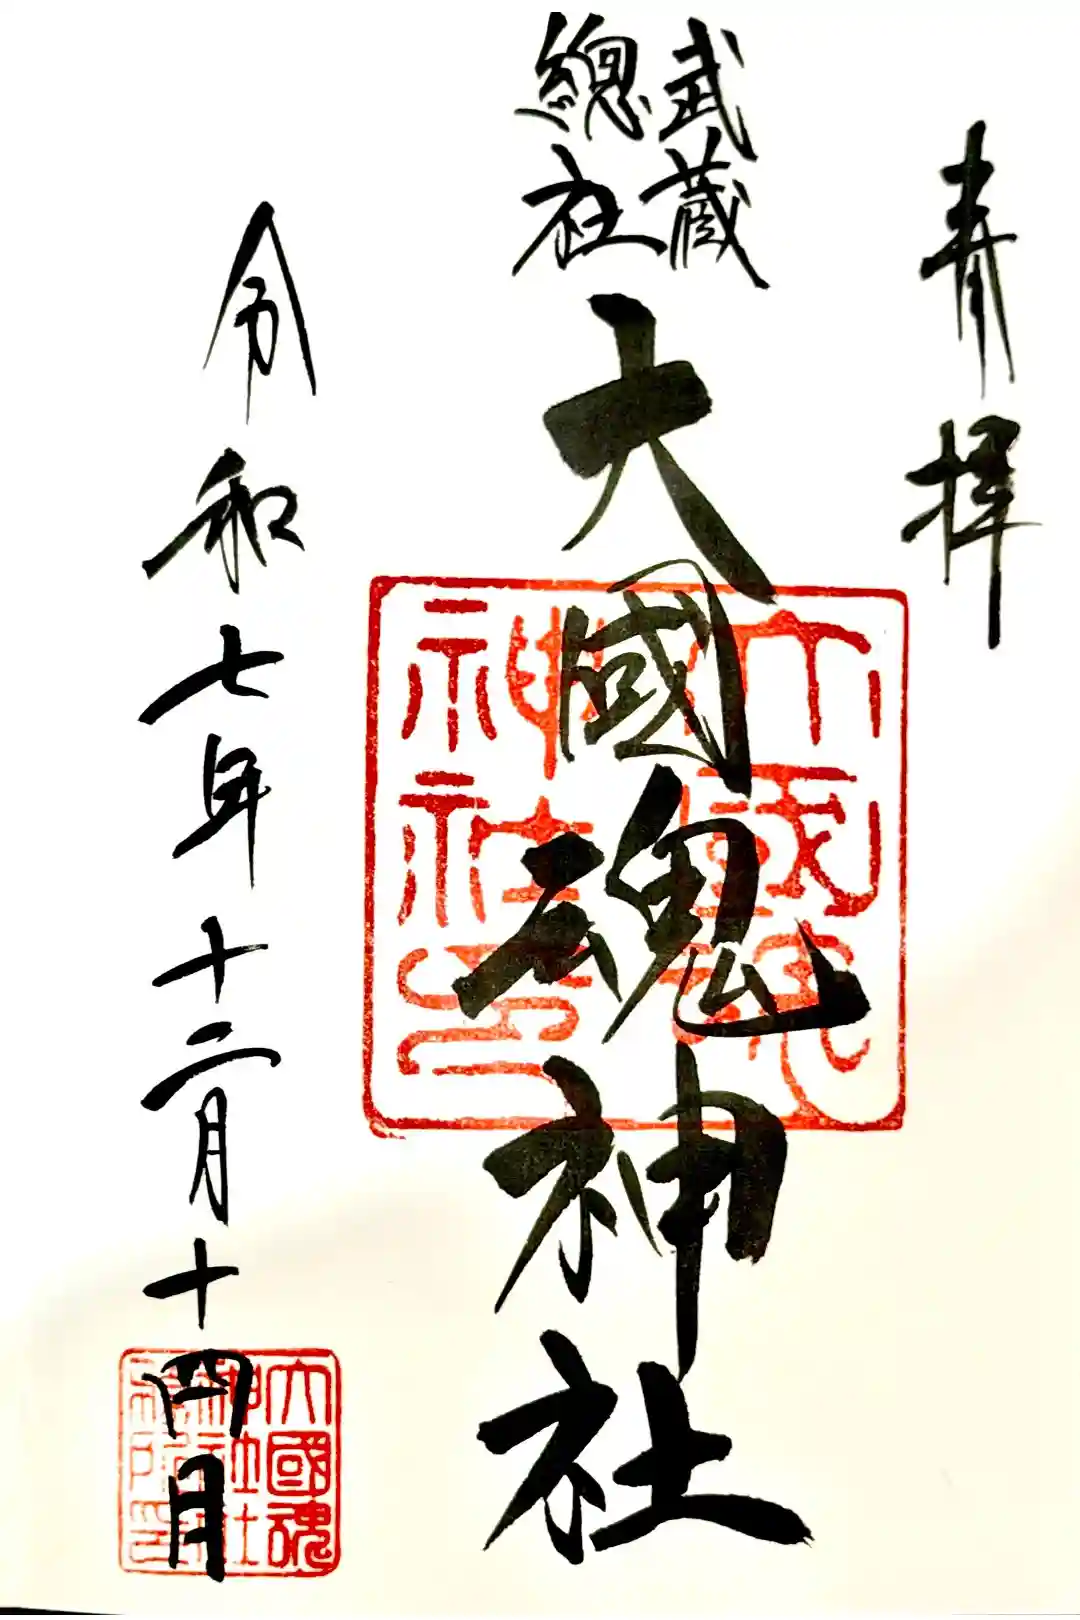 奉拝
武蔵
總社
大國魂神社
大國魂
神社印
令和七年十二月十四日
大國魂